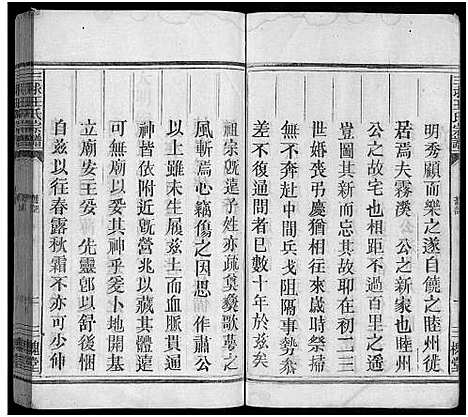 三球王氏宗譜
明秀顧而樂之遂自饒之睦州徙
居焉夫霧溪 公之新家也睦州
公之故宅也相距不過百里之遙
豈圖其新而忘其故耶在初二三
世婚喪弔慶猶相問歲時祭掃
無不奔赴中間兵戈阻隔事勢參
差不復通問者已數十年於茲矣
祖宗旣遠子姓亦疏葛藟歌與之
風斬焉心竊傷之因思 作肅公
以上雖未生居茲土而實神靈
神皆依陟旣營兆以藏其體遑
可無廟以安其神乎爰卜地開基
立廟安主妥 先靈卽以舒後悃
自兹以往春露秋霜不亦可少伸
三槐堂